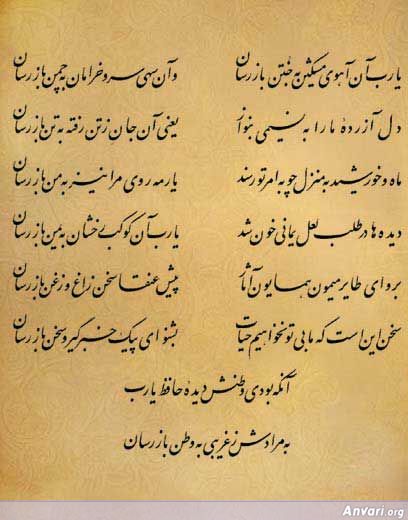 یارب آن آهوی مشکین به ختن بازرسان وآن سهی سرو خرامان به چمن بازرسان
دل آزردهٔ ما را به نسیمی بنواز یعنی آن جان ز تن رفته به تن بازرسان
ماه و خورشید به منزل چو به امر تو رسند یار مه روی مرا نیز به من بازرسان
دیده ها در طلب لعل یمانی خون شد یارب آن کوکب رخشان به یمن بازرسان
برو ای طایر میمون همایون آثار پیش عنقا سخن زاغ و زغن بازرسان
سخن این است که ما بی تو نخواهیم حیات بشنو ای پیک خبر گیر و سخن بازرسان
آنکه بودی وطنش دیدهٔ حافظ یارب
به مرادش ز غریبی به وطن بازرسان
Anvari.org